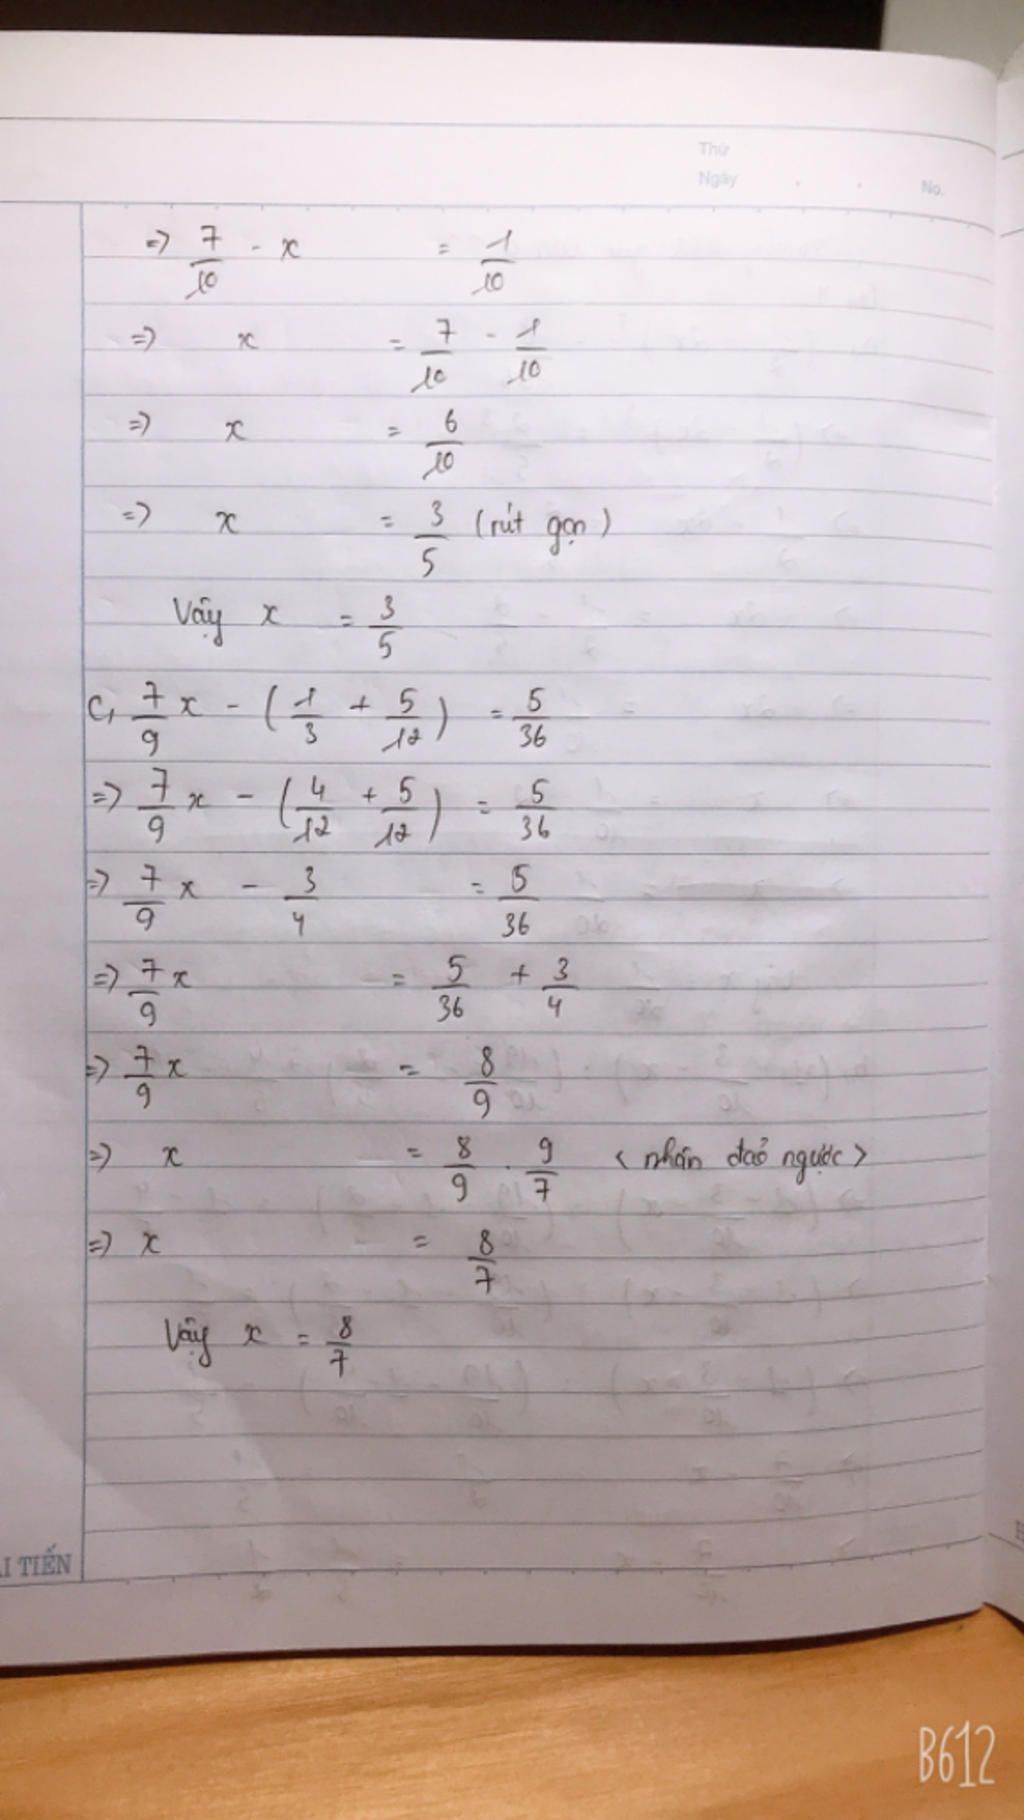 Thứ
Ngày . . No.
=> 7/10 - x = 1/10
=> x = 7/10 - 1/10
=> x = 6/10
=> x = 3/5 (rút gọn)
Vậy x = 3/5
C, 7/9 x - (1/3 + 5/12) = 5/36
=> 7/9 x - (4/12 + 5/12) = 5/36
=> 7/9 x - 3/4 = 5/36
=> 7/9 x = 5/36 + 3/4
=> 7/9 x = 8/9
=> x = 8/9 . 9/7 < nhân đảo ngược >
=> x = 8/7
Vậy x = 8/7
TIẾN
B612